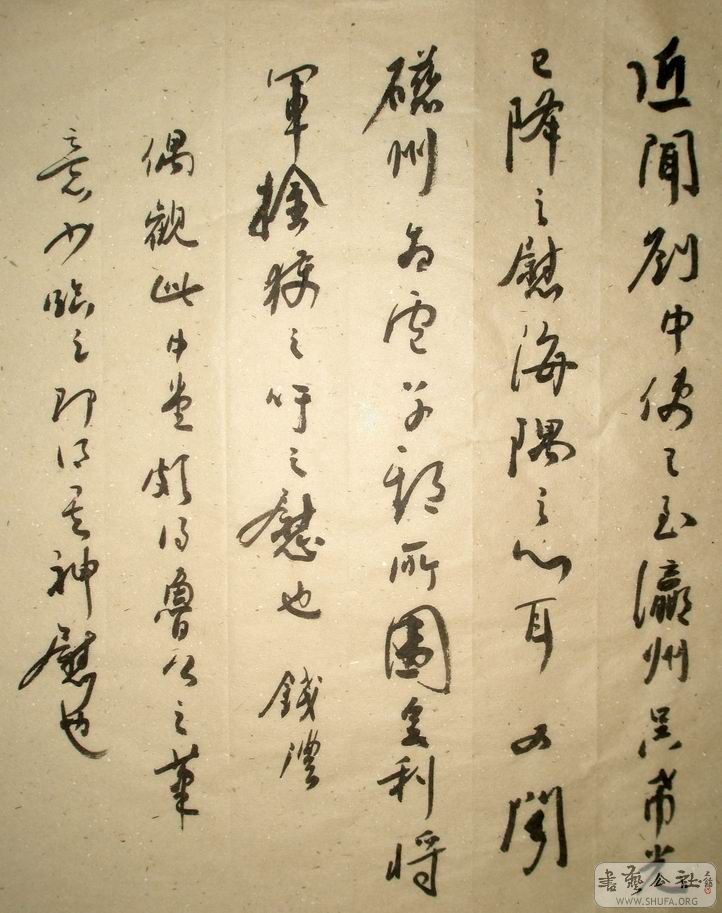 近聞劉中使至瀛州吳希光
已降足慰海隅之心耳又聞
磁州為盧子期所圍舍利將
軍擒獲之吁足慰也 錢灃
偶觀此中堂頗得魯公之筆
意少臨之即得其神慰也
書藝公社
WWW.SHUFA.ORG